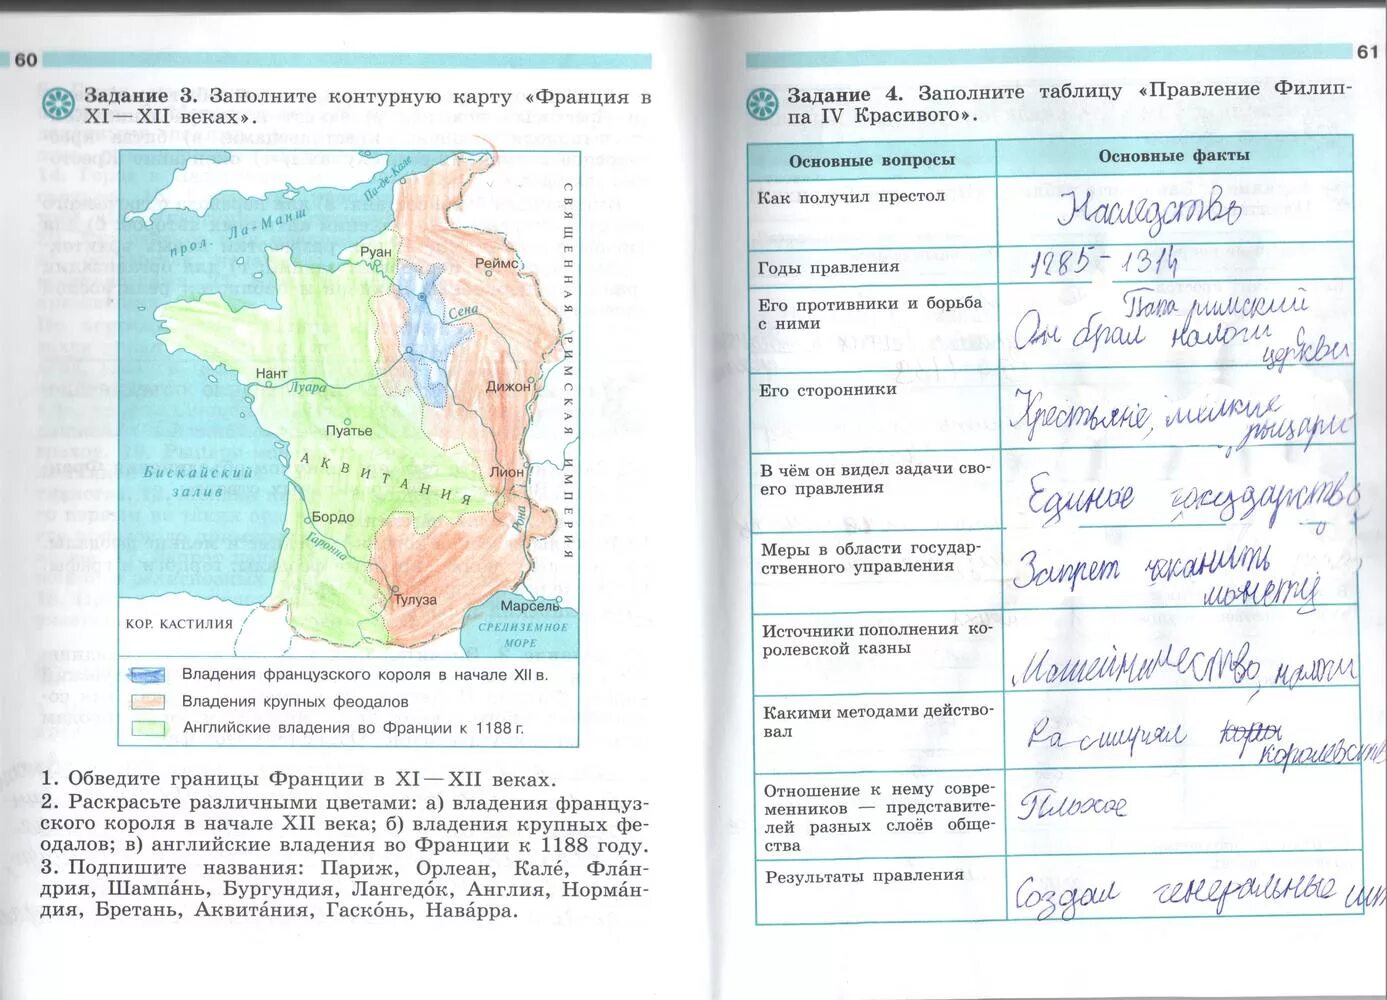 60
Задание 3. Заполните контурную карту «Франция в
XI — XII веках».
прол. Ла-Манш
Па-де-Кале
Руан
Реймс
Сена
СВЯЩЕННАЯ РИМСКАЯ ИМПЕРИЯ
Нант
Луара
Дижон
Пуатье
АКВИТАНИЯ
Бискайский
залив
Лион
Бордо
Гаронна
Рона
Тулуза
Марсель
КОР. КАСТИЛИЯ
СРЕДИЗЕМНОЕ
МОРЕ
Владения французского короля в начале XII в.
Владения крупных феодалов
Английские владения во Франции к 1188 г.
1. Обведите границы Франции в XI — XII веках.
2. Раскрасьте различными цветами: а) владения француз-
ского короля в начале XII века; б) владения крупных фе-
одалов; в) английские владения во Франции к 1188 году.
3. Подпишите названия: Париж, Орлеан, Кале́, Фла́н-
дрия, Шампа́нь, Бургундия, Лангедо́к, Англия, Норма́н-
дия, Бретань, Аквита́ния, Гаско́нь, Нава́рра.
61
Задание 4. Заполните таблицу «Правление Филип-
па IV Красивого».
Основные вопросы
Основные факты
Как получил престол
Наследство
Годы правления
1285 - 1314
Его противники и борьба
с ними
Папа римский
Он брал налоги с
церкви
Его сторонники
Крестьяне, мелкие
рыцари
В чём он видел задачи сво-
его правления
Единое государство
Меры в области государ-
ственного управления
Запрет чеканить
монету
Источники пополнения ко-
ролевской казны
налоги
Какими методами действо-
вал
Расширял
королевств
Отношение к нему совре-
менников — представите-
лей разных слоёв обще-
ства
Плохое
Результаты правления
Создал генеральные шт